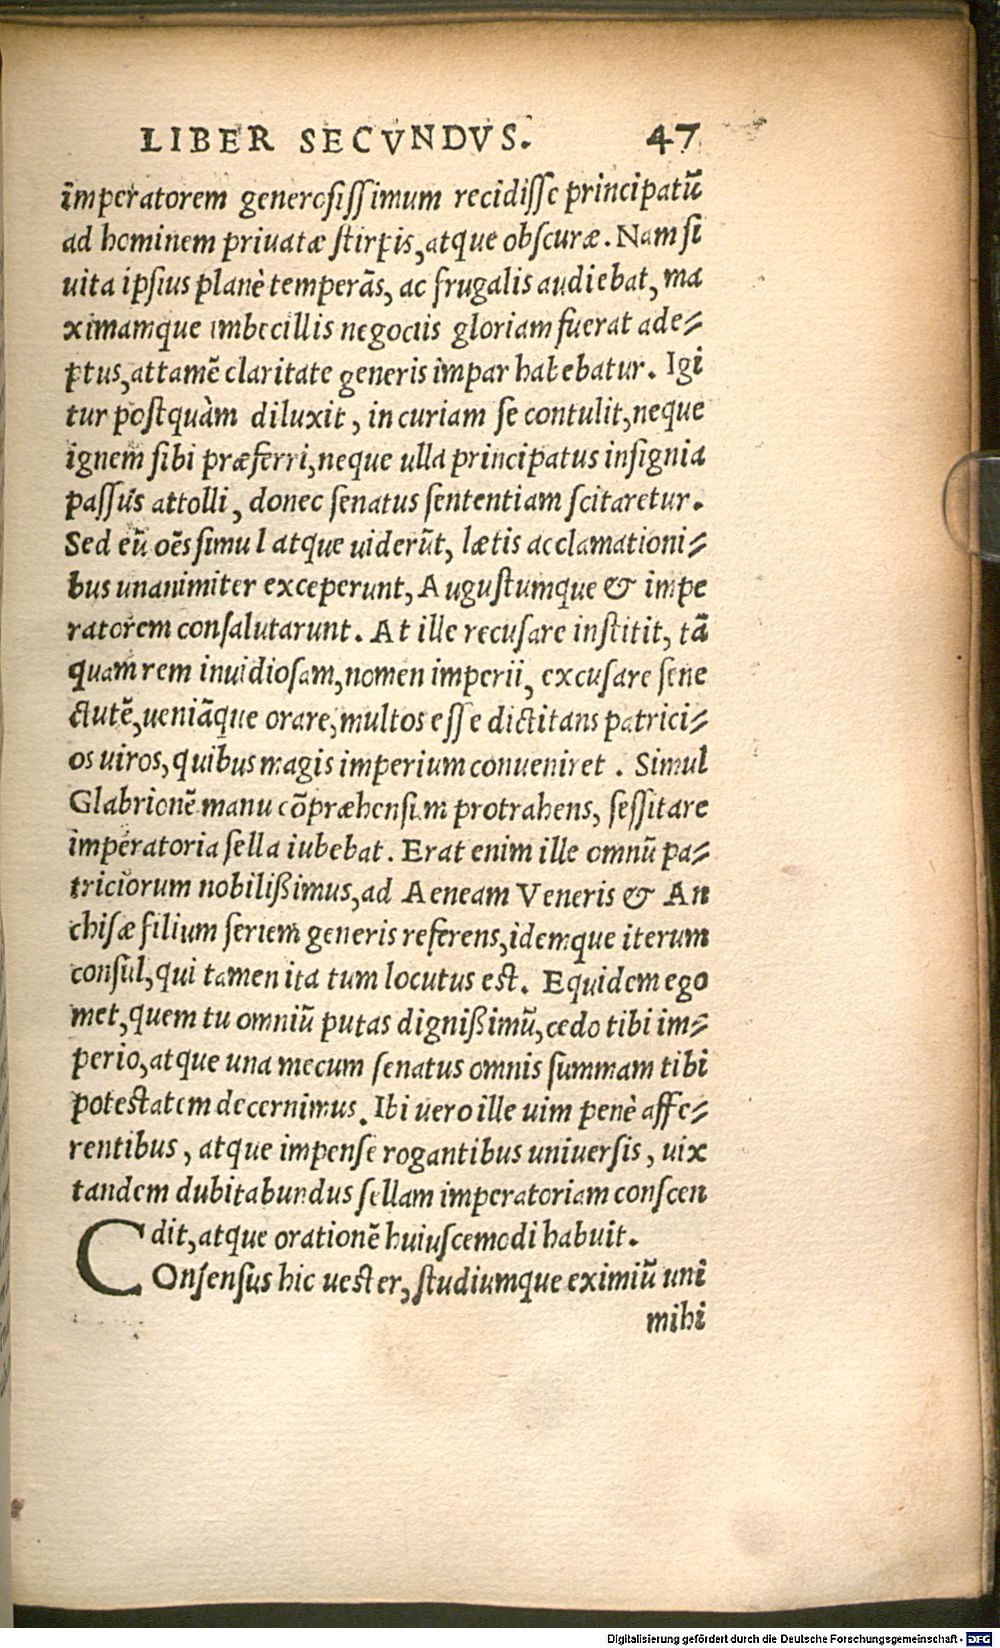 LIBER SECVNDVS. 47
imperatorem generosissimum recidisse principatũ
ad hominem priuatæ stirpis, atque obscuræ. Nam si
uita ipsius planè temperãs, ac frugalis audiebat, ma
ximamque imbecillis negociis gloriam fuerat ade⸗
ptus, attamẽ claritate generis impar habebatur. Igi
tur postquàm diluxit, in curiam se contulit, neque
ignem sibi præferri, neque ulla principatus insignia
passus attolli, donec senatus sententiam scitaretur.
Sed eũ oẽs simul atque uiderũt, lætis acclamationi⸗
bus unanimiter exceperunt, Augustumque & impe
ratorem consalutarunt. At ille recusare institit, tã
quam rem inuidiosam, nomen imperii, excusare sene
ctutẽ, ueniãque orare, multos esse dictitans patrici⸗
os uiros, quibus magis imperium conueniret. Simul
Glabrionẽ manu cõpræhensum protrahens, sessitare
imperatoria sella iubebat. Erat enim ille omnũ pa⸗
triciorum nobilißimus, ad Aeneam Veneris & An
chisæ filium seriem generis referens, idemque iterum
consul, qui tamen ita tum locutus est. Equidem ego
met, quem tu omniũ putas dignißimũ, cedo tibi im⸗
perio, atque una mecum senatus omnis summam tibi
potestatem decernimus. Ibi uero ille uim penè affe⸗
rentibus, atque impense rogantibus uniuersis, uix
tandem dubitabundus sellam imperatoriam conscen
dit, atque orationẽ huiuscemodi habuit.
COnsensus hic uester, studiumque eximiũ uni
mihi
Digitalisierung gefördert durch die Deutsche Forschungsgemeinschaft - DFG